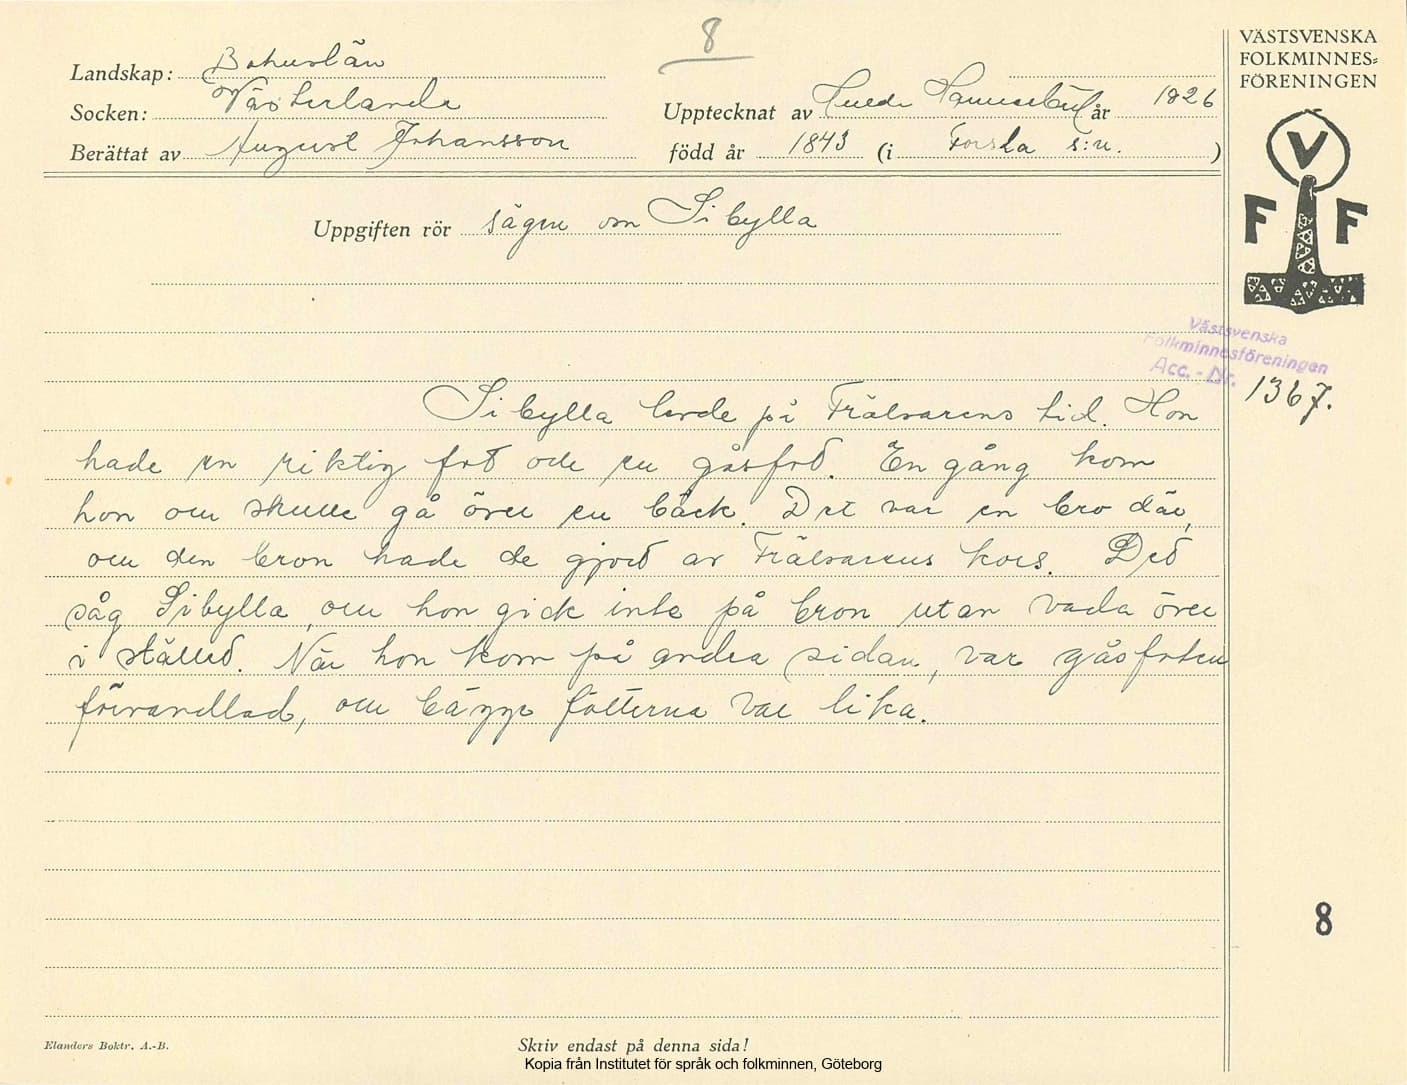 8
VÄSTSVENSKA
FOLKMINNES=
FÖRENINGEN
Landskap: Bohuslän
Socken: Västerlanda
Upptecknat av Hannaebäck år 1826
Berättat av August Johansson
född år 1843 (i Forsha s:n.)
V
F F
Uppgiften rör sägen om Sibylla
Västsvenska
Folkminnesföreningen
Acc. - Nr. 1367.
Sibylla levde på Frälsarens tid. Hon
hade en riktig fot och en gåsfod. En gång kom
hon och skulle gå över en bäck. Det var en bro där,
och den bron hade de gjord av Frälsarens kors. Ded
såg Sibylla, och hon gick inte på bron utan vada över
i ställed. När hon kom på andra sidan, var gåsfoten
förvandlad, och bägge fötterna var lika.
8
Elanders Boktr. A.-B.
Skriv endast på denna sida!
Kopia från Institutet för språk och folkminnen, Göteborg